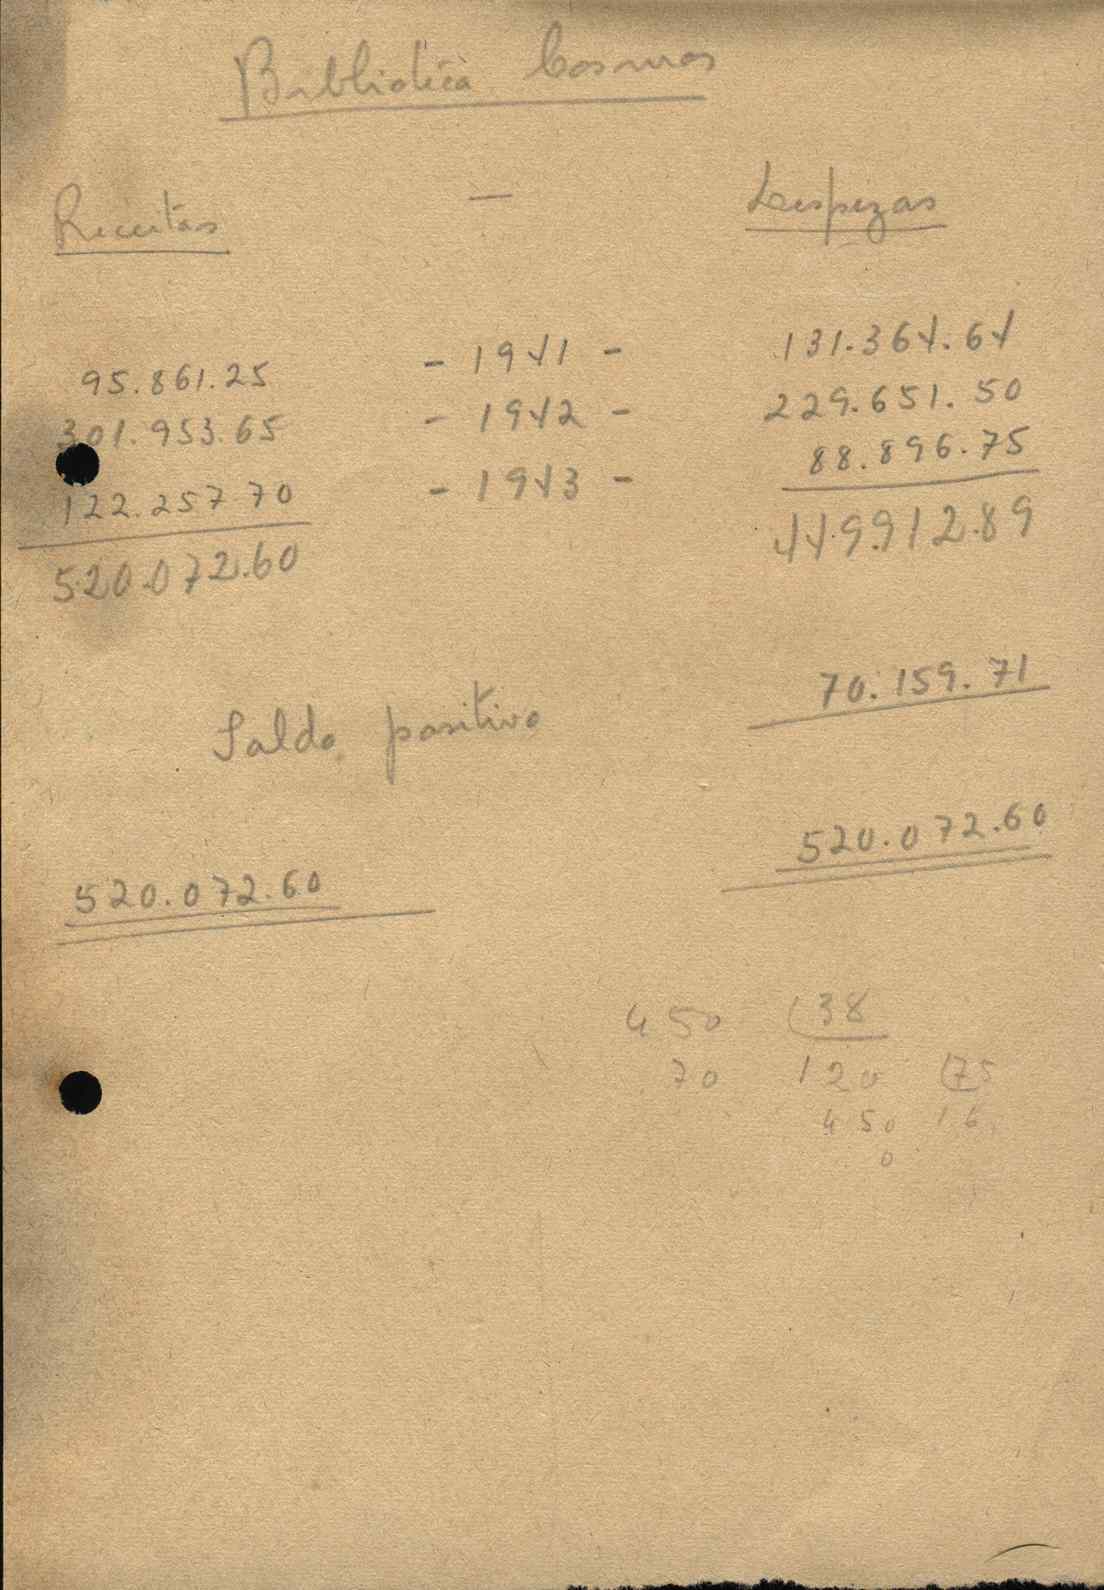 Biblioteca Cosmos
Receitas — Despezas
95.861.25 - 1941 - 131.364.64
301.953.65 - 1942 - 229.651.50
122.257.70 - 1943 - 88.896.75
520.072.60 449.912.89
Saldo positivo 70.159.71
520.072.60 520.072.60
450 38
70 120 75
450 16
0